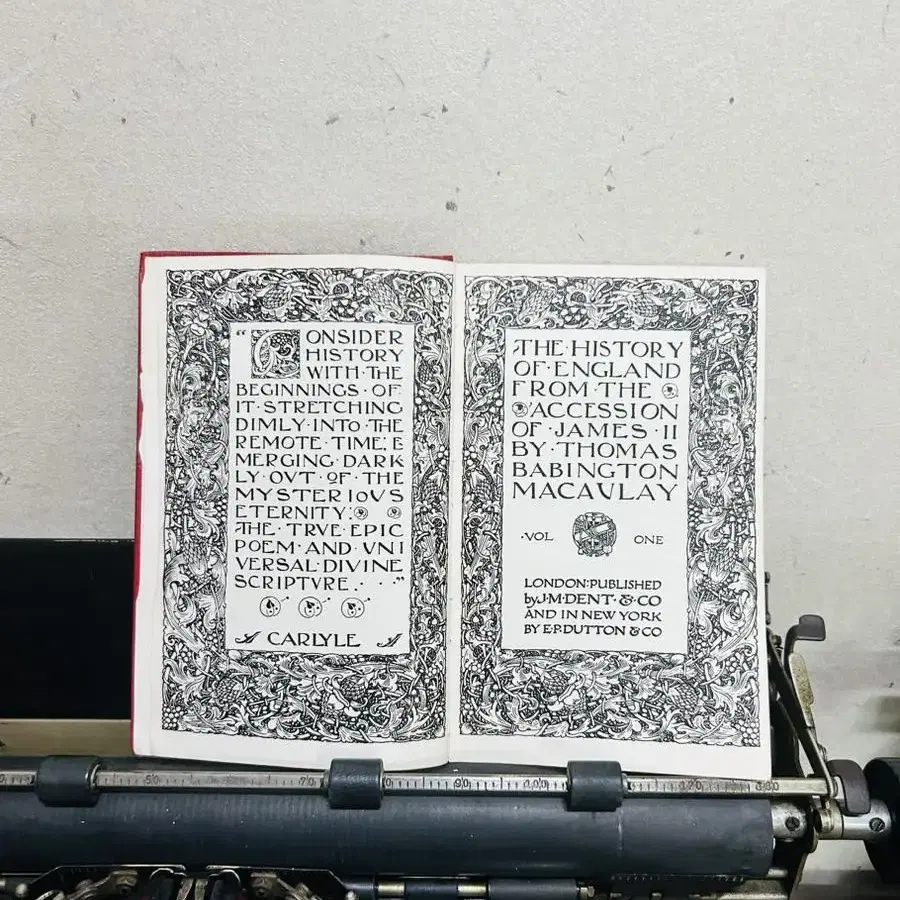 “CONSIDER
HISTORY
WITH·THE
BEGINNINGS·OF
IT·STRETCHING
DIMLY·INTO·THE
REMOTE·TIME; E
MERGING·DARK
LY·OVT·OF·THE
MYSTERIOVS
ETERNITY:
THE·TRVE·EPIC
POEM·AND·VNI
VERSAL·DIVINE
SCRIPTVRE. . .”
CARLYLE
THE·HISTORY
OF·ENGLAND
FROM·THE
ACCESSION
OF·JAMES·II
BY·THOMAS
BABINGTON
MACAVLAY
·VOL ONE
LONDON:PUBLISHED
by J·M·DENT·&·CO
AND IN NEW YORK
BY E.P.DUTTON & CO